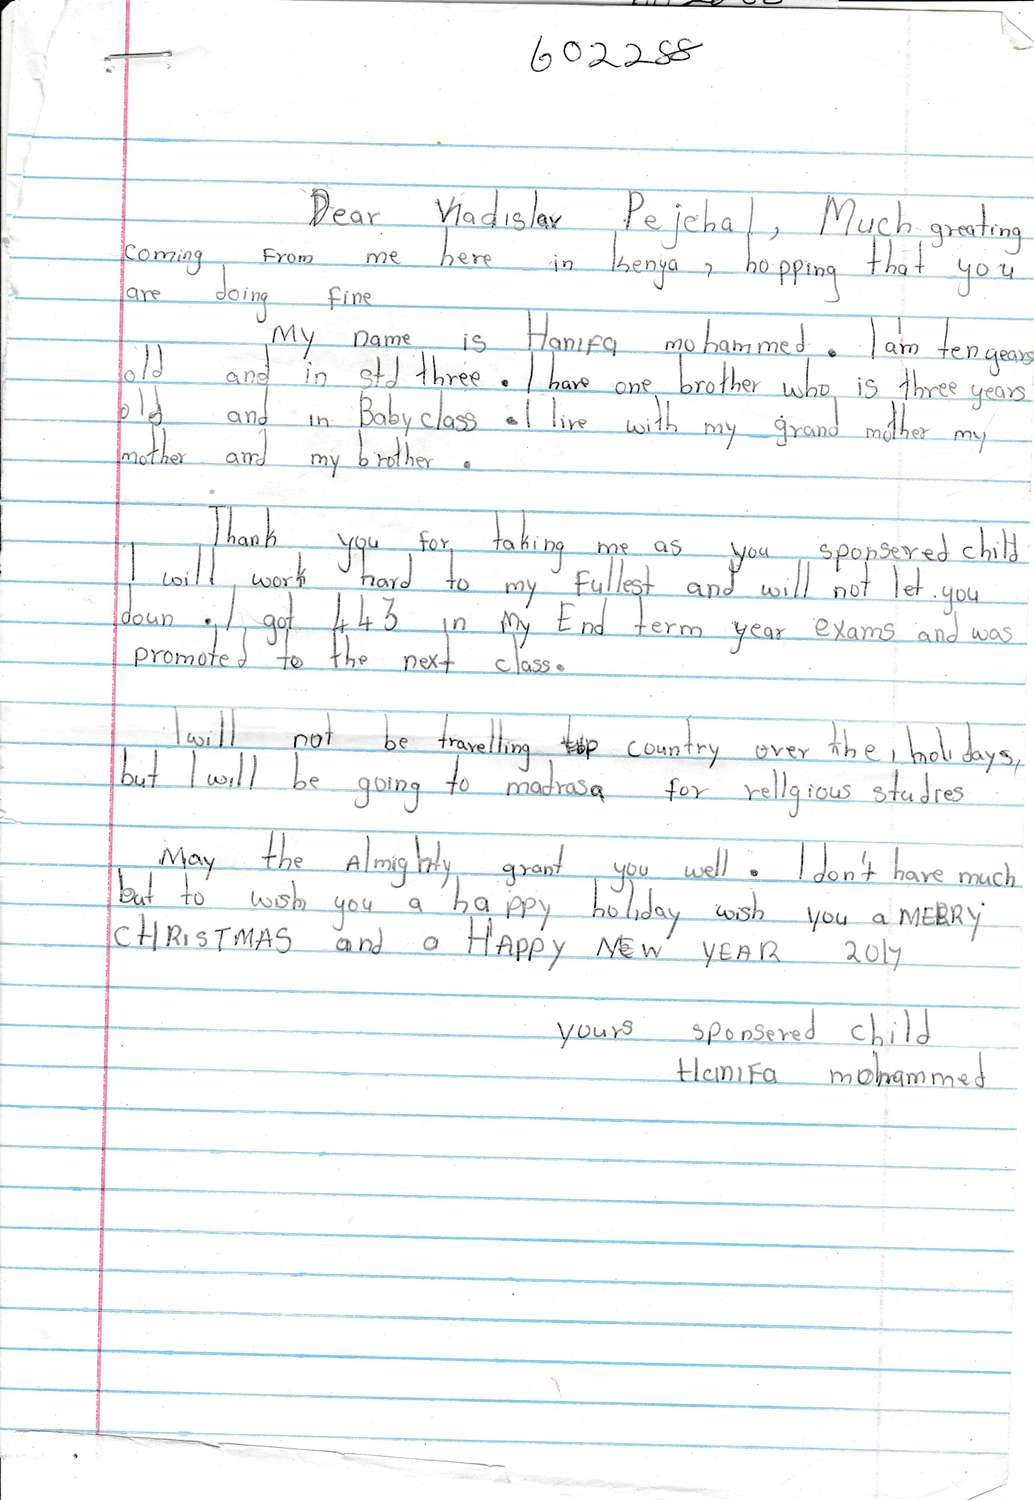 602288
Dear Vladislav Pejchal, Much greating
coming From me here in kenya, hopping that you
are doing fine
My name is Hanifa mohammed. I am ten years
old and in std three. I have one brother who is three years
old and in Baby class. I live with my grand mother my
mother and my brother.
Thank you for taking me as you sponsered child
I will work hard to my Fullest and will not let you
doun. I got 443 in My End term year exams and was
promoted to the next class.
I will not be travelling country over the holidays,
but I will be going to madrasa for rellgious studies
May the Almighty grant you well. I don't have much
but to wish you a happy holiday wish you a MERRY
CHRISTMAS and a HAPPY NEW YEAR 2017
yours sponsered child
Hanifa mohammed